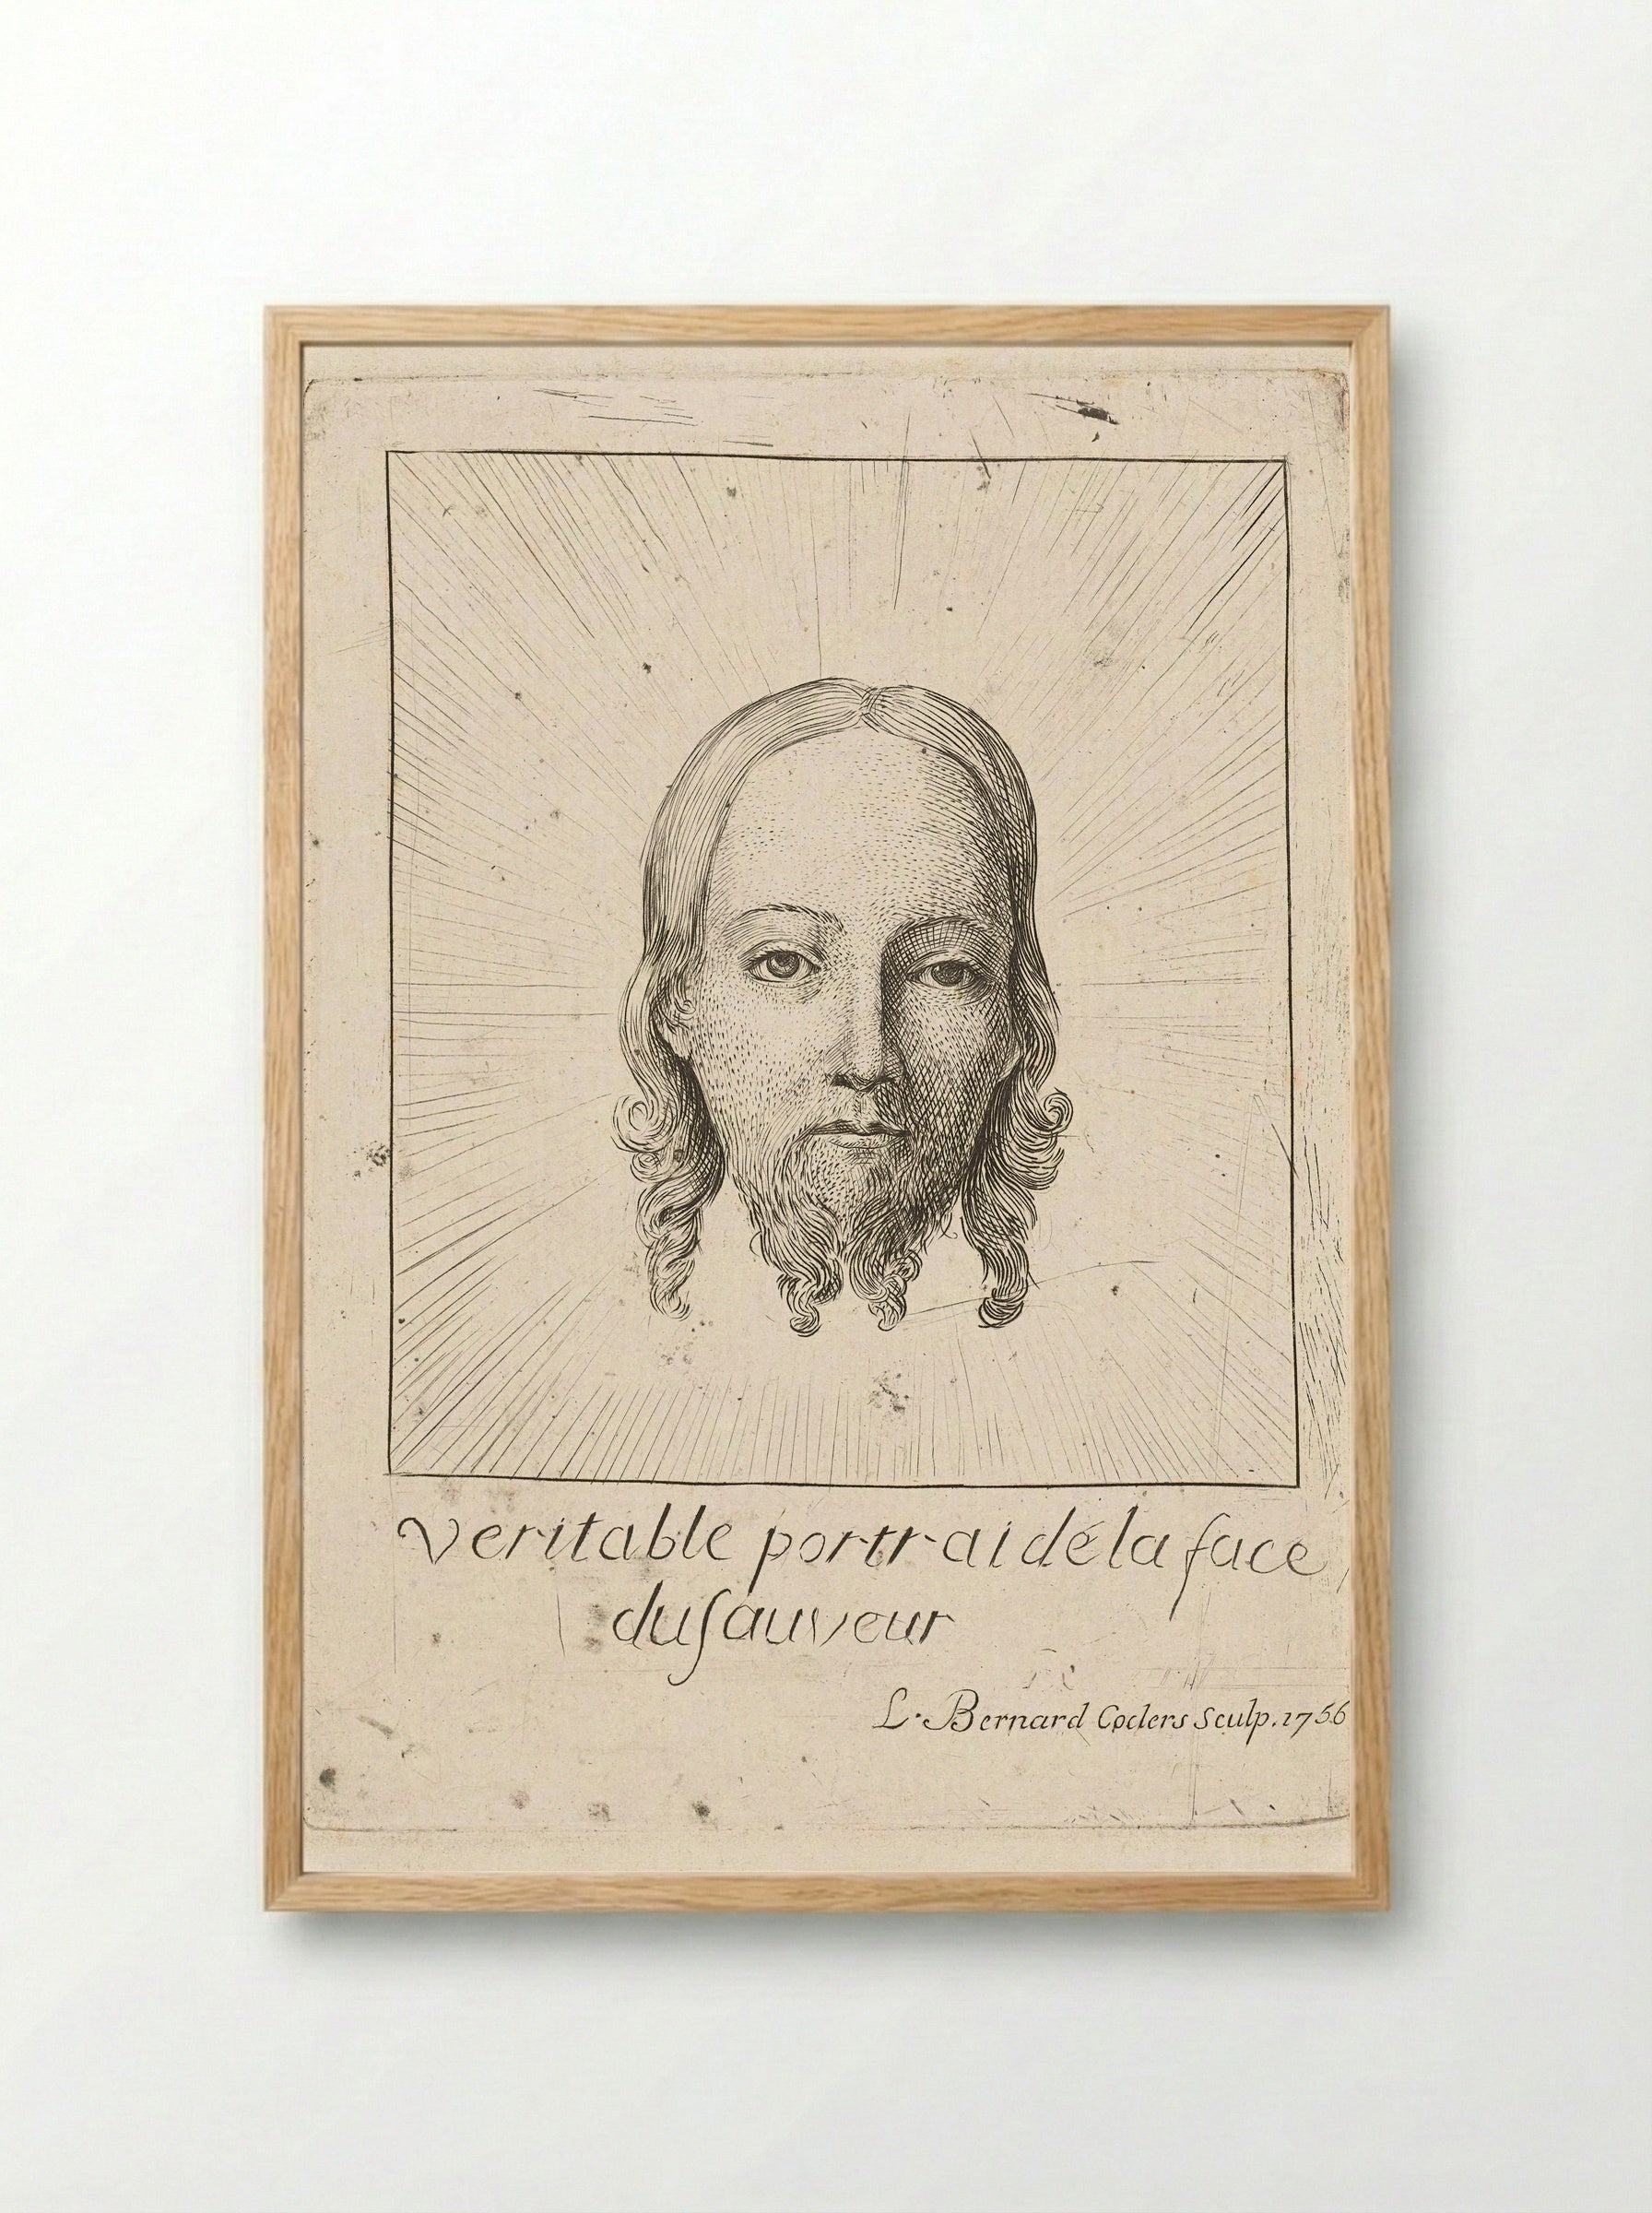 Veritable portrai de la face
du ſauveur
L. Bernard Coclers Sculp. 1756